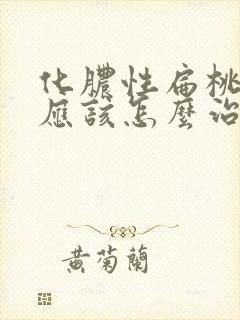 化膿性扁桃
應該怎麼治
黃菊蘭